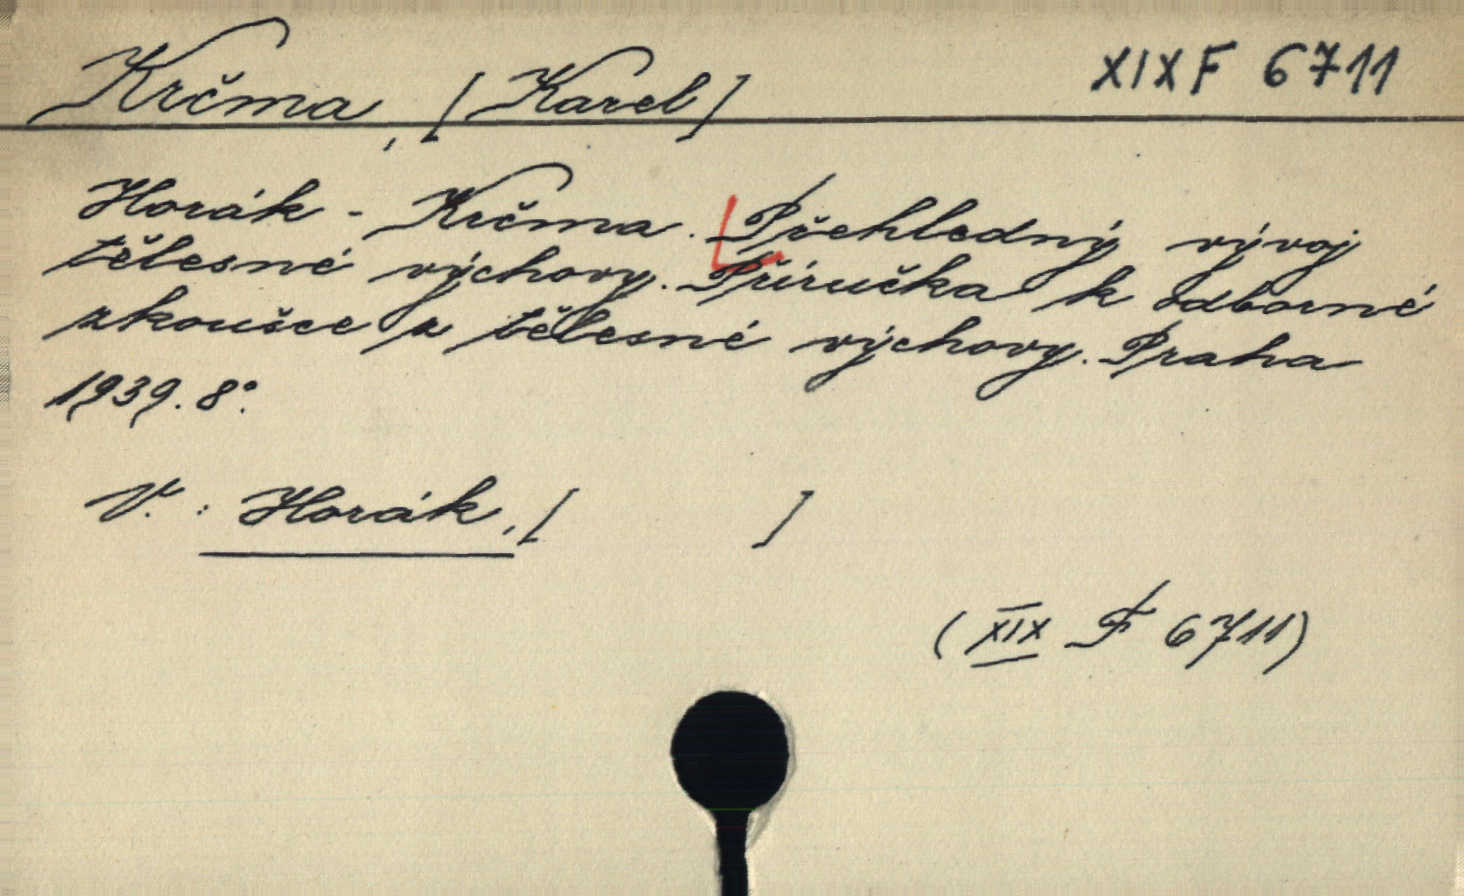 Krčma, [Karel] XIX F 6711
Horák - Krčma. Přehledný vývoj
tělesné výchovy. Příručka k odborné
zkoušce z tělesné výchovy. Praha
1939. 8°.
V. : Horák, [ ]
(XIX F 6711)